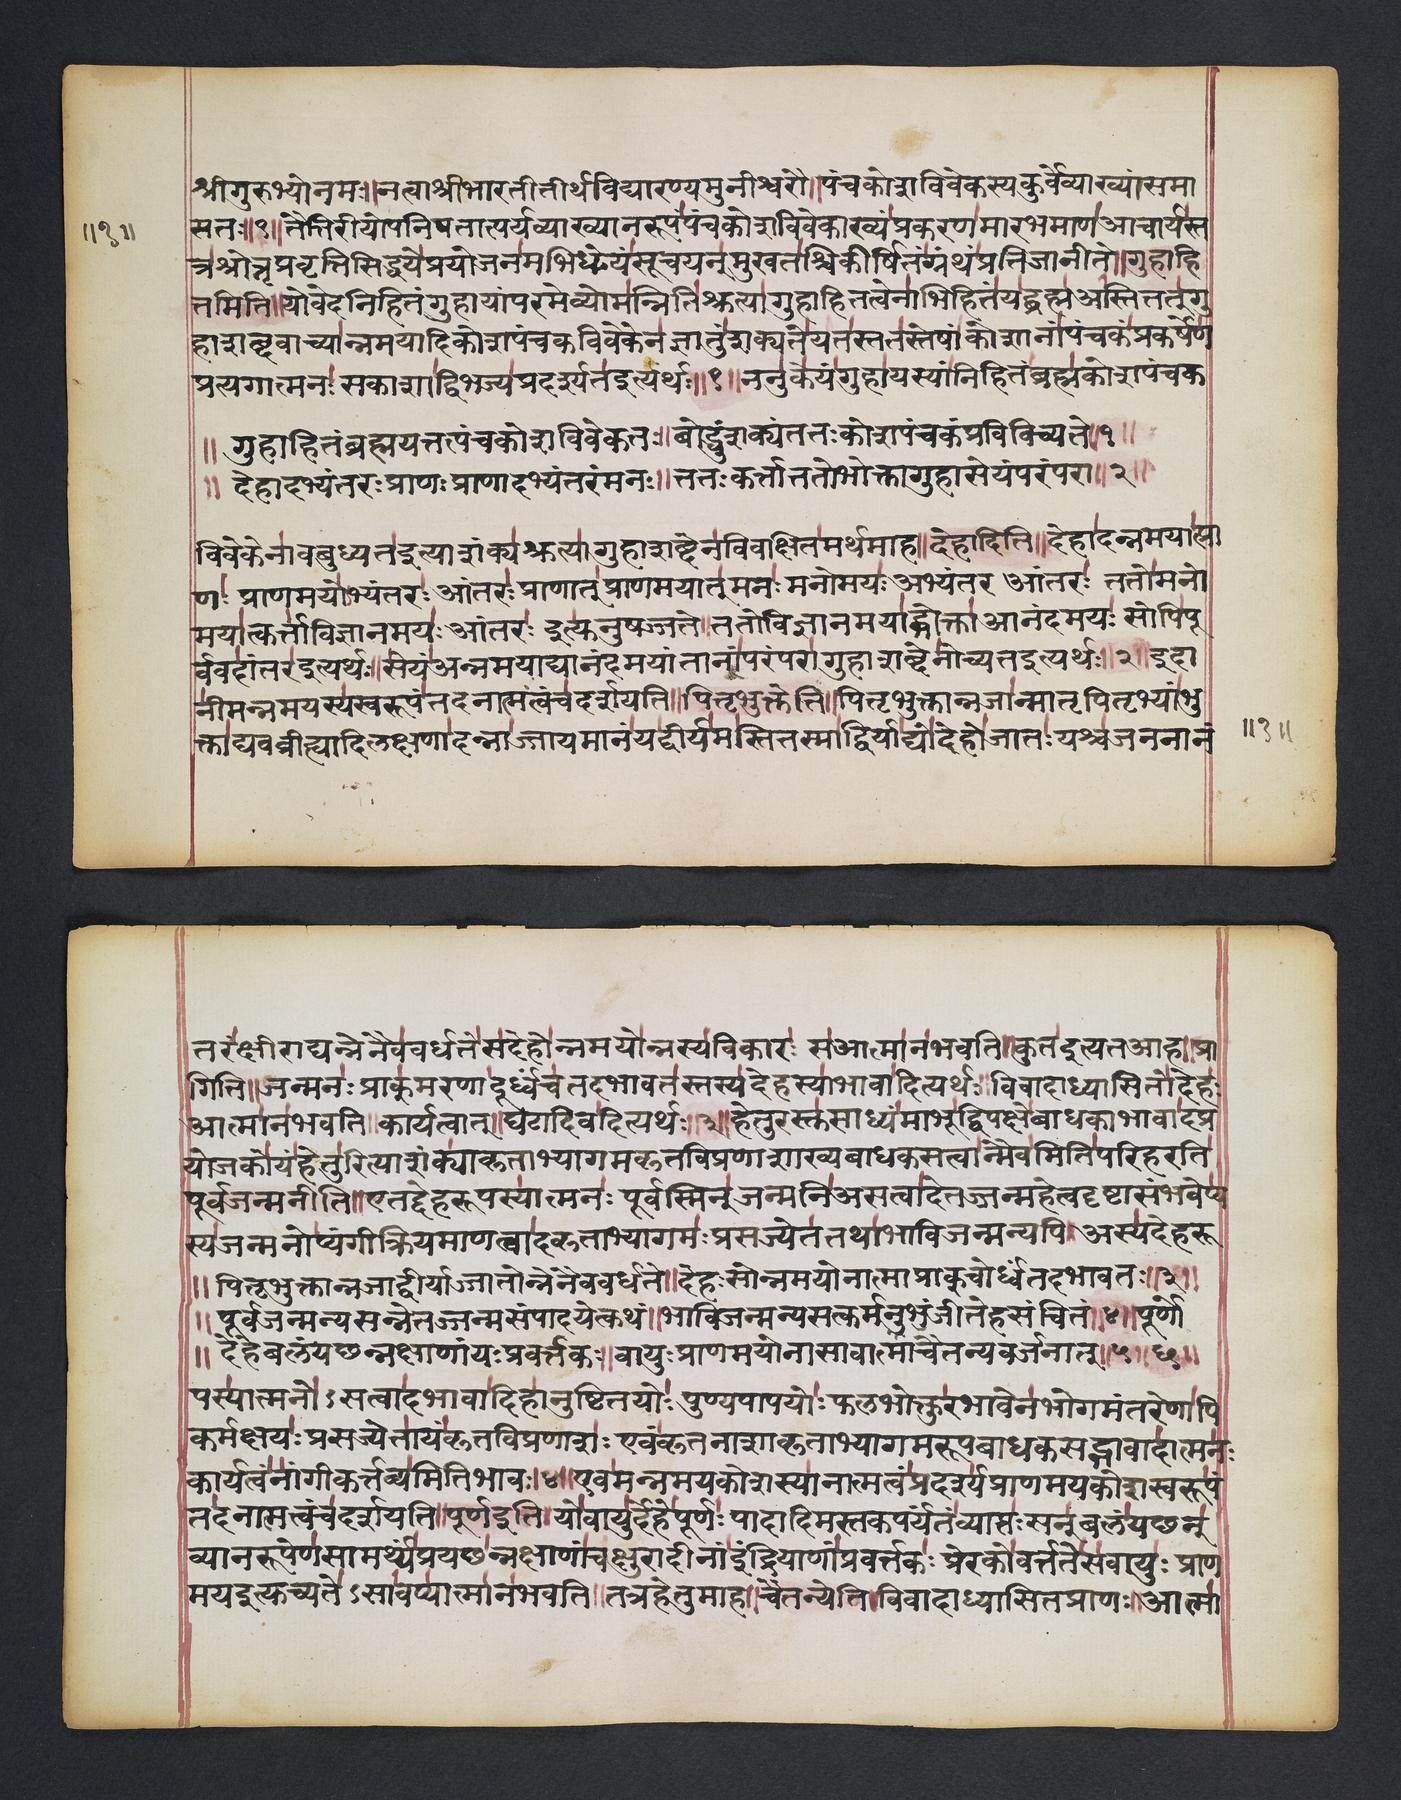 श्रीगुरुभ्योनमः॥नत्वाश्रीभारतीतीर्थविद्यारण्यमुनीश्वरौ॥पंचकोशविवेकस्यकुर्वेव्याख्यांसमा
॥१॥
सतः॥१॥तैत्तिरीयोपनिषतात्पर्यव्याख्यानरूपंपंचकोशविवेकाख्यंप्रकरणमारभमाणआचार्यस्त
त्रश्रोतृप्रवृत्तिसिद्धयेप्रयोजनमभिधेयंसूचयन्मुखतश्चिकीर्षितंग्रंथंप्रतिजानीते॥गुहाहि
तमिति॥योवेदनिहितंगुहायांपरमेव्योमन्नितिश्रुत्यागुहाहितत्वेनाभिहितंयद्ब्रह्मअस्तितत्तुगु
हाशब्दवाच्यान्नमयादिकोशपंचकविवेकेनज्ञातुंशक्यतेयतस्ततस्तेषांकोशानांपंचकंप्रकर्षेण
प्रत्यगात्मनःसकाशाद्विभज्यप्रदर्श्यतइत्यर्थः॥१॥ननुकेयंगुहायस्यांनिहितंब्रह्मकोशपंचक
॥गुहाहितंब्रह्मयत्तत्पंचकोशविवेकतः॥बोद्धुंशक्यंततःकोशपंचकंप्रविविच्यते॥१॥
॥देहादभ्यंतरःप्राणःप्राणादभ्यंतरंमनः॥ततःकर्त्ताततोभोक्तागुहासेयंपरंपरा॥२॥
विवेकेनावबुध्यतइत्याशंक्यश्रुत्यागुहाशब्देनविवाक्षितमर्थमाह॥देहादिति॥देहादन्नमयात्प्रा
णः प्राणमयोभ्यंतरः आंतरः प्राणात्प्राणमयात्मनः मनोमयः अभ्यंतर आंतरः ततोमनो
मयात्कर्त्ताविज्ञानमयः आंतरः इत्यनुषज्जते॥ततोविज्ञानमयाद्भोक्ताआनंदमयः सोपिपू
र्ववदांतरइत्यर्थः॥सेयंअन्नमयाद्यानंदमयांतानांपरंपरागुहाशब्देनोच्यतइत्यर्थः॥२॥इदा
नीमन्नमयस्यस्वरूपंतदनात्मत्वंचदर्शयति॥पितृभुक्तेति॥पितृभुक्तान्नजान्मातृपितृभ्यांभु
क्ताद्यवव्रीह्यादिलक्षणादन्नाज्जायमानंयद्वीर्यमस्तितस्माद्विर्याद्योदेहोजातःयश्चजननानं
॥१॥
तरंक्षीराद्यन्नेनैववर्धतेसदेहोन्नमयोन्नस्यविकारः सआत्मानभवति॥कुतइत्यतआह॥प्रा
गिति॥जन्मनःप्राक्मरणादूर्ध्वंचतदभावतस्तस्यदेहस्याभावादित्यर्थः॥विवादाध्यासितोदेहः
आत्मानभवति॥कार्यत्वात्॥घटादिवदित्यर्थः॥३॥हेतुरस्तुसाध्यंमाभूद्विपक्षेबाधकाभावादप्र
योजकोयंहेतुरित्याशंक्याकृताभ्यागमकृतविप्रणाशाख्यबाधकसत्वान्मैवमितिपरिहरति
पूर्वजन्मनीति॥एतद्देहरूपस्यात्मनः पूर्वस्मिन्जन्मनिअसत्वादेतज्जन्महेत्वदृष्टासंभवेप्य
स्यजन्मनोप्यंगीक्रियमाणत्वादकृताभ्यागमःप्रसज्येततथाभाविजन्मन्यपि॥अस्यदेहरू
॥पितृभुक्तान्नजाद्वीर्याज्जातोन्नेनैववर्धते॥देहःसोन्नमयोनात्माप्राक्चोर्ध्वंतदभावतः॥३॥
॥पूर्वजन्मन्यसन्नेतज्जन्मसंपादयेत्कथं॥भाविजन्मन्यसत्कर्मनुभुंजीतेहसंचितं॥४॥पूर्णो
॥देहेबलंयछन्नक्षाणांयःप्रवर्त्तकः॥वायुःप्राणमयोनासावात्माचैतन्यवर्जनात्॥५॥
पस्यात्मनोऽसत्वादभावादिहानुष्ठितयोः पुण्यपापयोः फलभोक्तुरभावेनभोगमंतरेणापि
कर्मक्षयःप्रसज्येतायंकृतविप्रणाशः एवंकृतनाशाकृताभ्यागमरूपबाधकसद्भावादात्मनः
कार्यत्वंनांगीकर्त्तव्यमितिभावः॥४॥एवमन्नमयकोशस्यानात्मत्वंप्रदर्श्यप्राणमयकोशस्वरूपं
तदनात्मत्वंचदर्शयति॥पूर्णइति॥योवायुर्देहेपूर्णः पादादिमस्तकपर्यंतंव्याप्तःसन्बलंयछन्
व्यानरूपेणसामर्थ्यंप्रयछन्नक्षाणांचक्षुरादीनांइंद्रियाणांप्रवर्त्तकः प्रेरकोवर्त्ततेसवायुः प्राण
मयइत्युच्यतेऽसावप्यात्मानभवति॥तत्रहेतुमाह॥चैतन्येति॥विवादाध्यासितप्राणः॥आत्मा